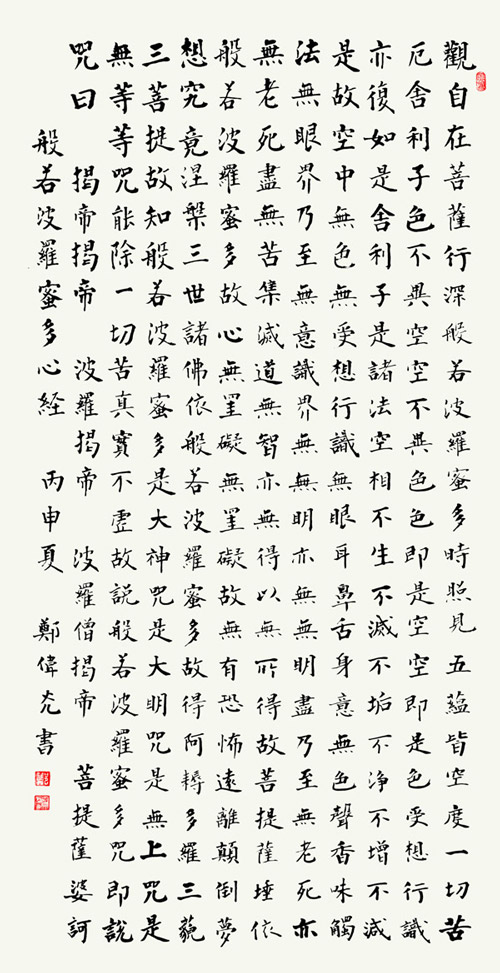 觀自在菩薩行深般若波羅蜜多時照見五蘊皆空度一切苦
厄舍利子色不異空空不異色色即是空空即是色受想行識
亦復如是舍利子是諸法空相不生不滅不垢不净不增不減
是故空中無色無受想行識無眼耳鼻舌身意無色聲香味觸
法無眼界乃至無意識界無無明亦無無明盡乃至無老死亦
無老死盡無苦集滅道無智亦無得以無所得故菩提薩埵依
般若波羅蜜多故心無罣礙無罣礙故無有恐怖遠離顛倒夢
想究竟涅槃三世諸佛依般若波羅蜜多故得阿耨多羅三藐
三菩提故知般若波羅蜜多是大神咒是大明咒是無上咒是
無等等咒能除一切苦真實不虛故説般若波羅蜜多咒即説
咒曰 揭帝揭帝 波羅揭帝 波羅僧揭帝 菩提薩婆訶
般若波羅蜜多心経 丙申夏 鄭偉光書